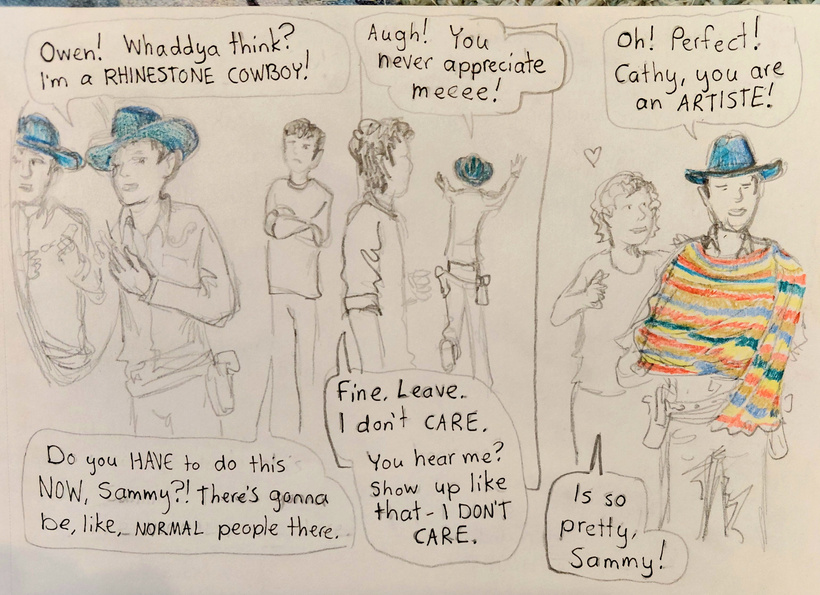 Owen! Whaddya think?
I'm a RHINESTONE COWBOY!
Do you HAVE to do this
NOW, Sammy?! There's gonna
be, like, NORMAL people there.
Augh! You
never appreciate
meeee!
Fine. Leave.
I don't CARE.
You hear me?
Show up like
that - I DON'T
CARE.
Oh! Perfect!
Cathy, you are
an ARTISTE!
Is so
pretty,
Sammy!